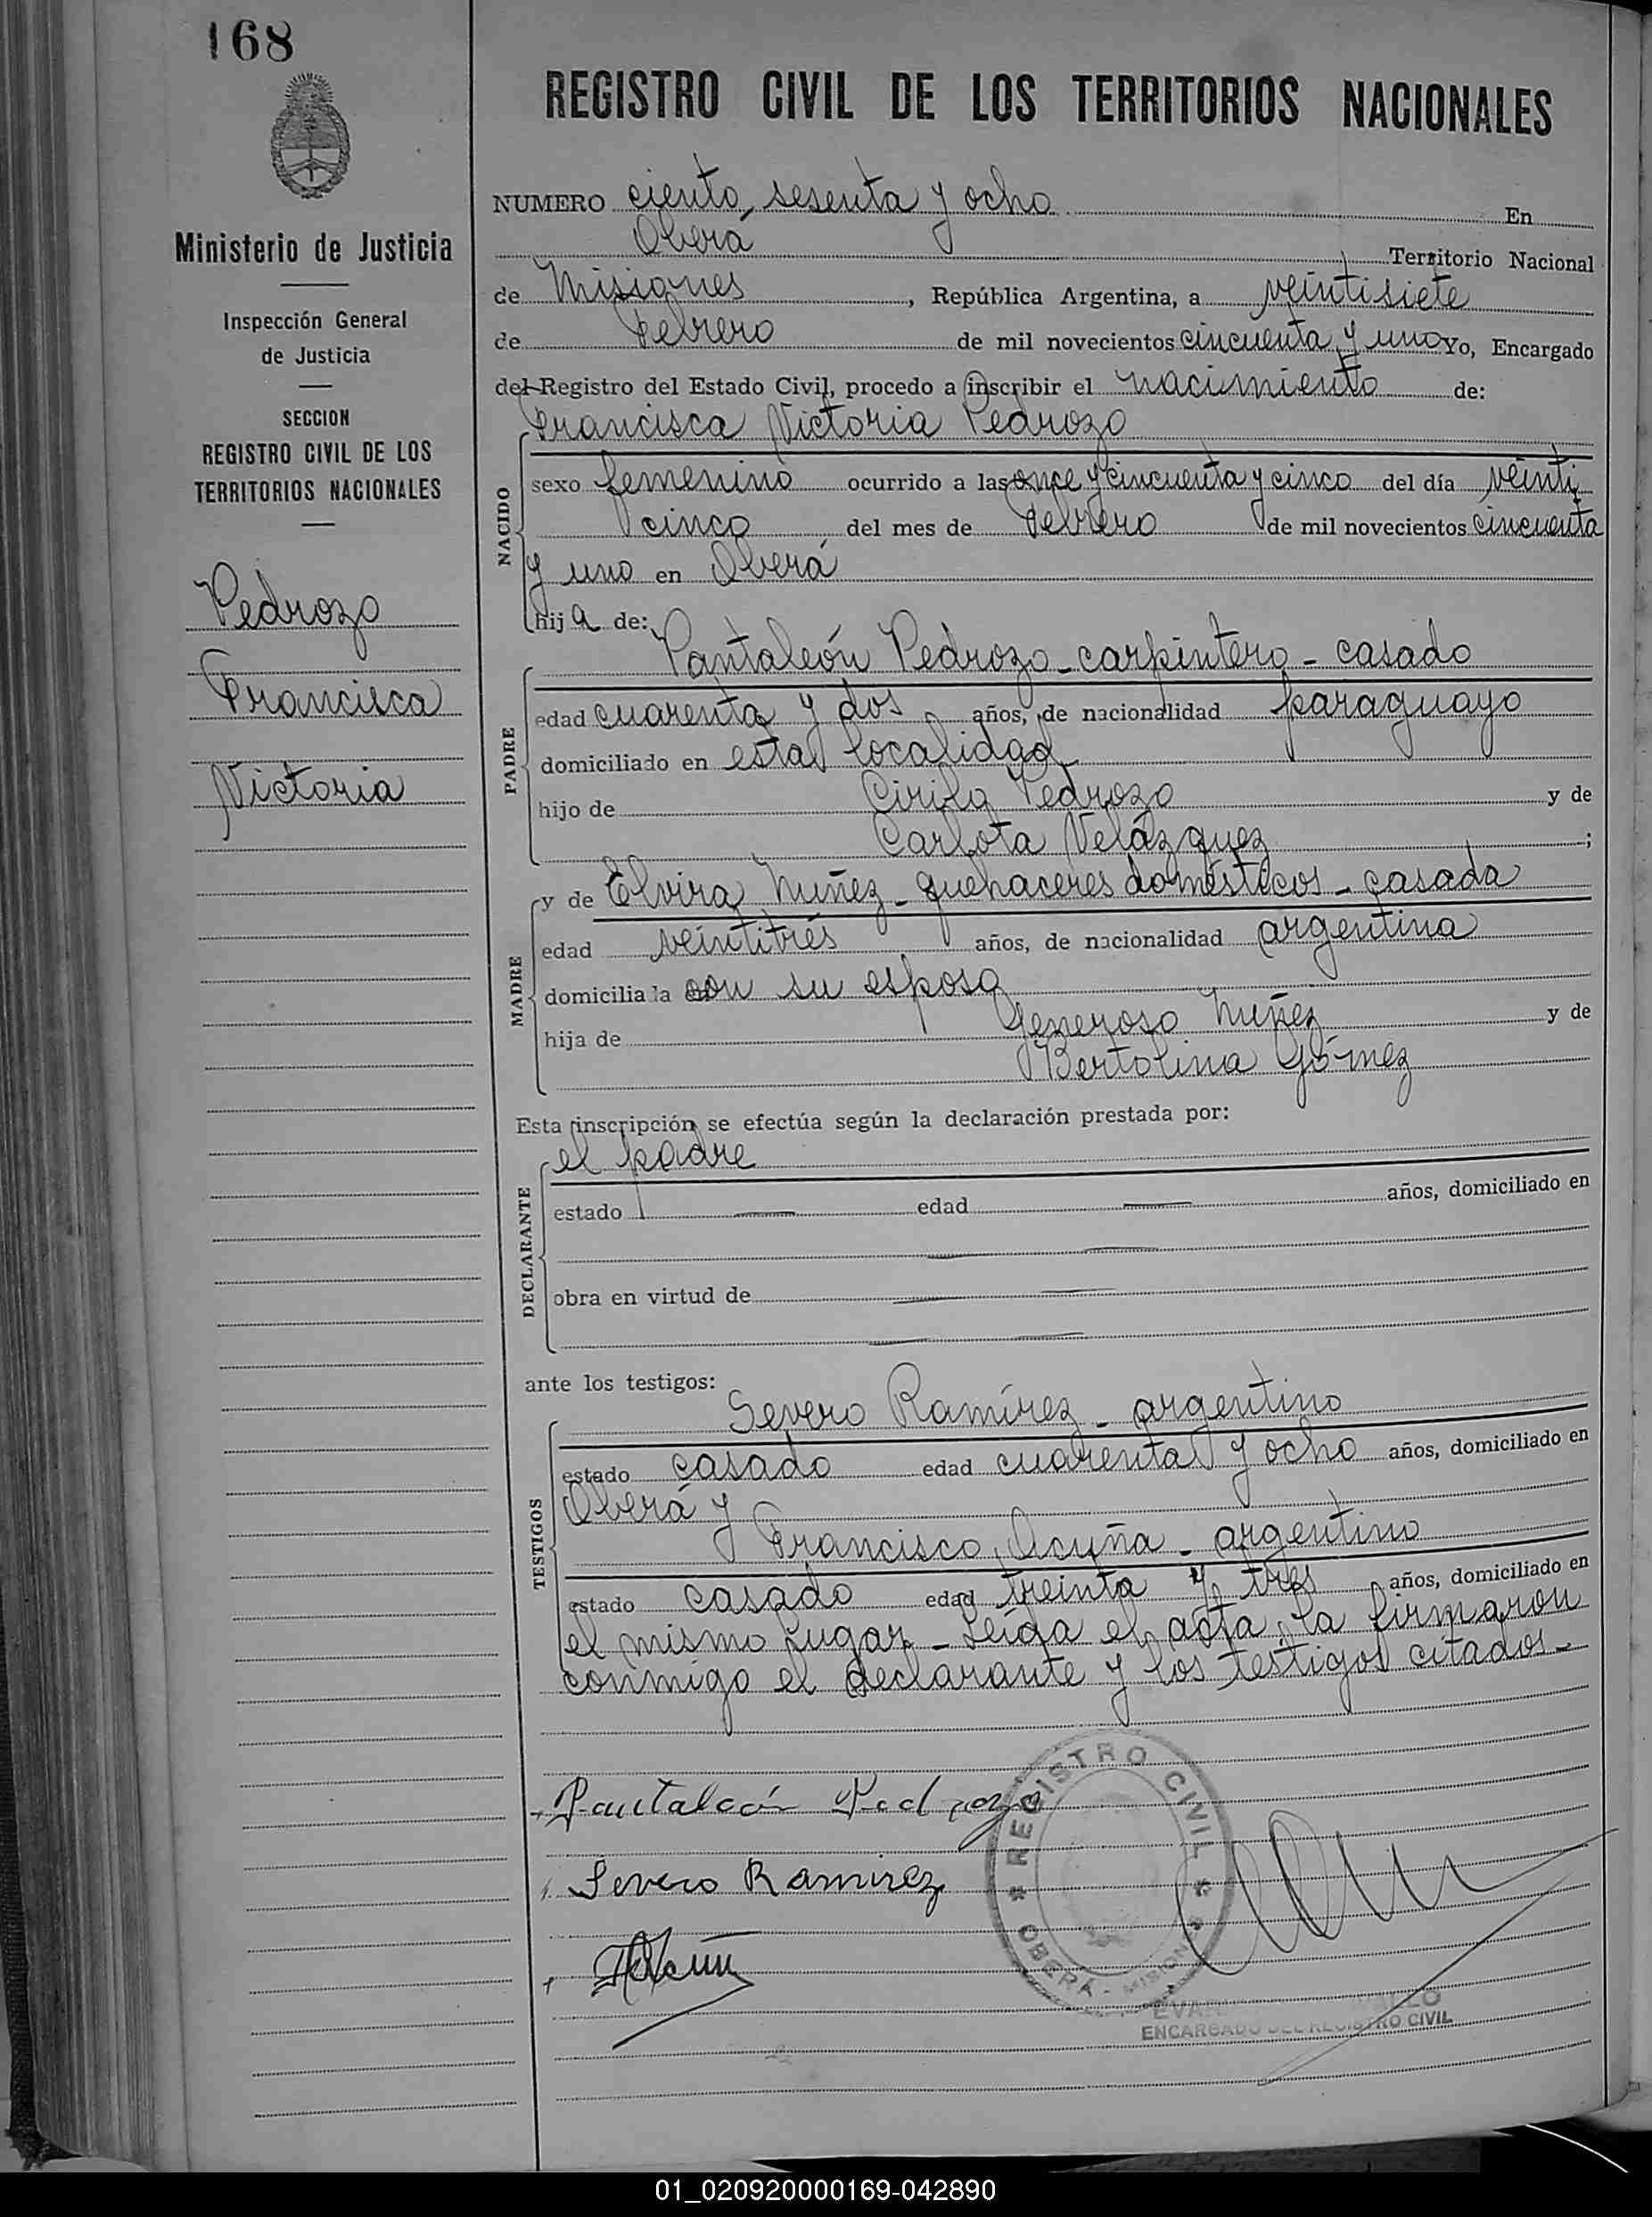 168
REGISTRO CIVIL DE LOS TERRITORIOS NACIONALES
Ministerio de Justicia
Inspección General
de Justicia
SECCION
REGISTRO CIVIL DE LOS
TERRITORIOS NACIONALES
Pedrozo
Francisca
Victoria
NUMERO ciento sesenta y ocho En
Oberá Territorio Nacional
de Misiones, República Argentina, a veintisiete
de Febrero de mil novecientos cincuenta y uno Yo, Encargado
del Registro del Estado Civil, procedo a inscribir el nacimiento de:
Francisca Victoria Pedrozo
NACIDO
sexo femenino ocurrido a las once y cincuenta y cinco del día veinti
cinco del mes de Febrero de mil novecientos cincuenta
y uno en Oberá
hija de:
PADRE
Pantaleón Pedrozo - carpintero - casado
edad cuarenta y dos años, de nacionalidad paraguayo
domiciliado en esta localidad
hijo de Cirila Pedrozo y de
Carlota Velázquez ;
MADRE
y de Elvira Nuñez - quehaceres domésticos - casada
edad veintitrés años, de nacionalidad argentina
domiciliada con su esposo
hija de Generoso Nuñez y de
Bertolina Gómez
Esta inscripción se efectúa según la declaración prestada por:
DECLARANTE
el padre
estado — edad — años, domiciliado en
obra en virtud de
ante los testigos:
TESTIGOS
Severo Ramírez - argentino
estado casado edad cuarenta y ocho años, domiciliado en
Oberá y
Francisco Acuña - argentino
estado casado edad treinta y tres años, domiciliado en
el mismo lugar - Leída el acta, la firmaron
conmigo el declarante y los testigos citados -
Pantaleón Pedrozo
Severo Ramirez
REGISTRO CIVIL
OBERA - MISIONES
ENCARGADO DEL REGISTRO CIVIL
01_020920000169-042890